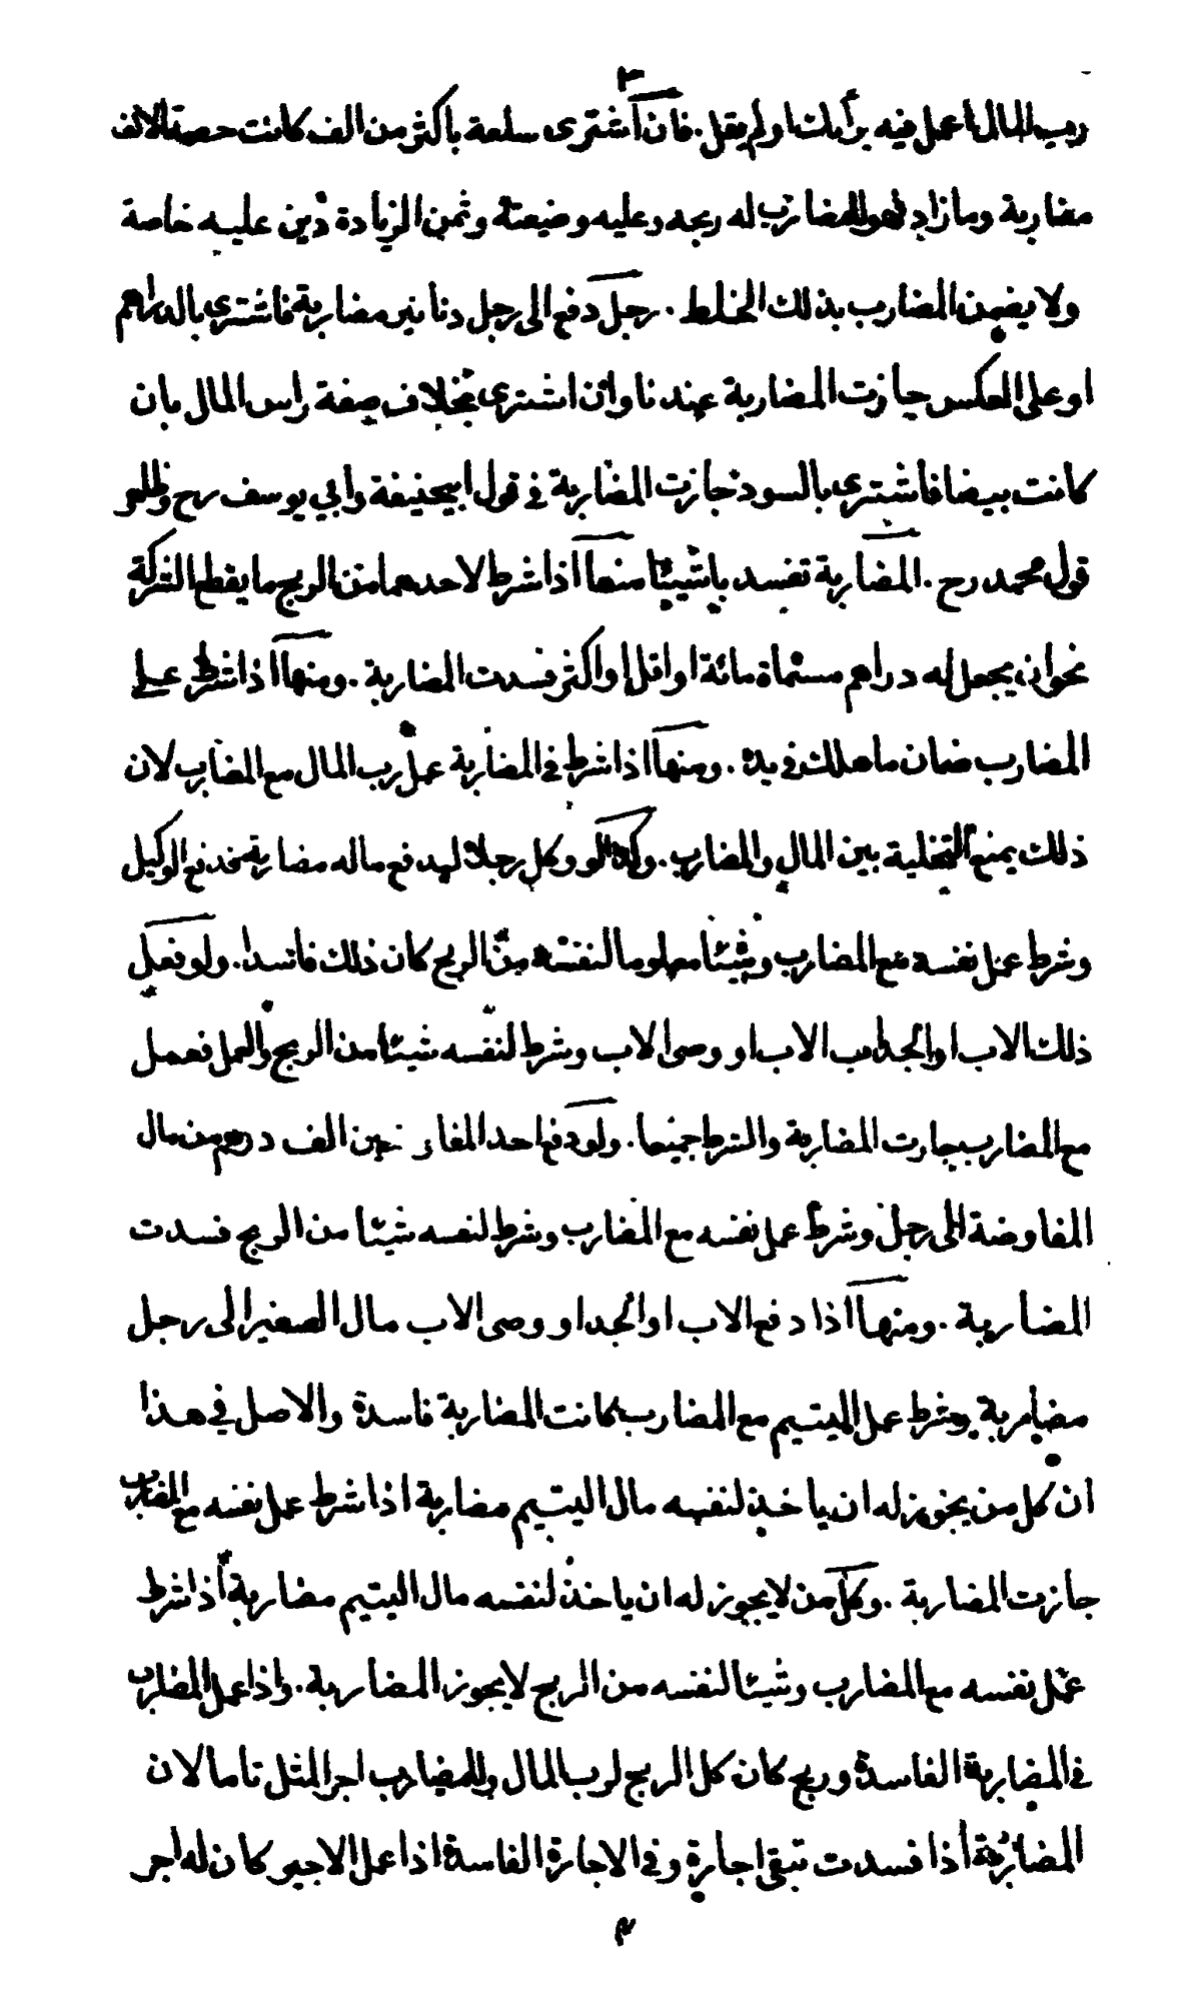 ٣
رب المال اعمل فيه برأيك او لم يقل. فان اشترى سلعة باكثر من الف كانت حصة الالف
مضاربة وما زاد فهو للمضارب له ربحه وعليه وضيعته وثمن الزيادة دين عليه خاصة
ولا يضمن المضارب بذلك الخلط . رجل دفع الى رجل دنانير مضاربة فاشترى بالدراهم
او على العكس جازت المضاربة عندنا وان اشترى بخلاف صفة راس المال بان
كانت بيضا فاشترى بالسود جازت المضاربة فى قول ابيحنيفة وابي يوسف رح وظاهر
قول محمد رح . المضاربة تفسد باشيئا منها اذا شرط لاحدهما من الربح ما يقطع الشركة
نحو ان يجعل له دراهم مسماة مائة او اقل او اكثر فسدت المضاربة . ومنها اذا شرط على
المضارب ضمان ما هلك فى يده . ومنها اذا شرط فى المضاربة عمل رب المال مع المضارب لان
ذلك يمنع التخلية بين المال والمضارب . وكذا لو وكل رجلا ليدفع ماله مضاربة فدفع الوكيل
وشرط عمل نفسه مع المضارب وشيئا معلوما لنفسه من الربح كان ذلك فاسدا . ولو فعل
ذلك الاب او الجد اب الاب او وصى الاب وشرط لنفسه شيئا من الربح والعمل فعمل
مع المضارب جازت المضاربة والشرط جميعا . ولو دفع احد المفاوضين الف درهم من مال
المفاوضة الى رجل وشرط عمل نفسه مع المضارب وشرط لنفسه شيئا من الربح فسدت
المضاربة . ومنها اذا دفع الاب او الجد او وصى الاب مال الصغير الى رجل
مضاربة وشرط عمل اليتيم مع المضارب كانت المضاربة فاسدة والاصل فى هذا
ان كل من يجوز له ان ياخذ لنفسه مال اليتيم مضاربة اذا شرط عمل نفسه مع المضارب
جازت المضاربة . وكل من لا يجوز له ان ياخذ لنفسه مال اليتيم مضاربة اذا شرط
عمل نفسه مع المضارب وشيئا لنفسه من الربح لا يجوز المضاربة . واذا عمل المضارب
فى المضاربة الفاسدة وربح كان كل الربح لرب المال وللمضارب اجر المثل تاما لان
المضاربة اذا فسدت تبقى اجارة وفى الاجارة الفاسدة اذا عمل الاجير كان له اجر
م